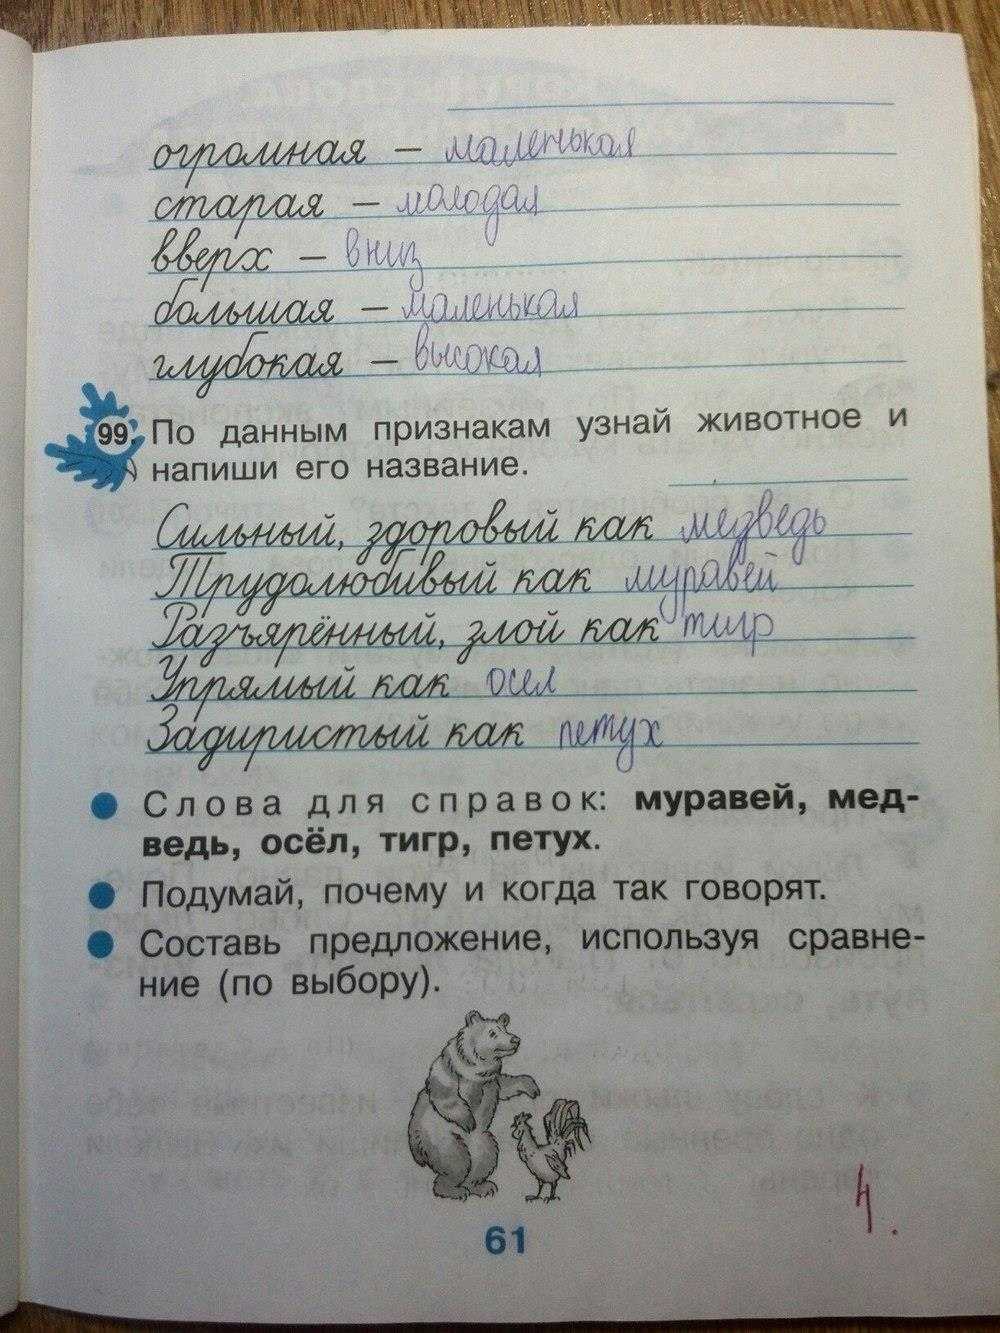 огромная – маленькая
старая – молодая
вверх – вниз
большая – маленькая
глубокая – высокая
99. По данным признакам узнай животное и
напиши его название.
Сильный, здоровый как медведь
Трудолюбивый как муравей
Разъярённый, злой как тигр
Упрямый как осел
Задиристый как петух
Слова для справок: муравей, мед-
ведь, осёл, тигр, петух.
Подумай, почему и когда так говорят.
Составь предложение, используя сравне-
ние (по выбору).
4.
61